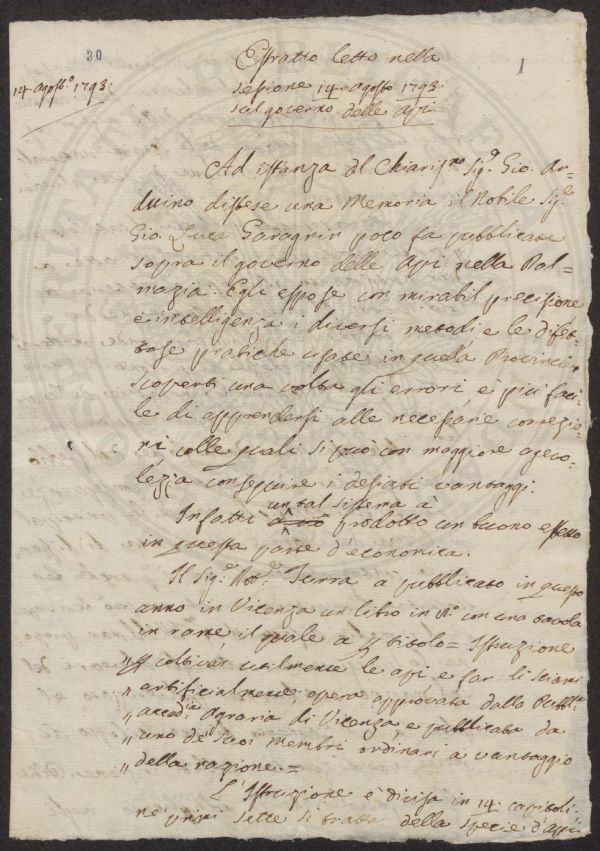 30
1
14. agost.º 1793.
Estratto letto nella
sessione 14. agosto 1793.
sul governo delle Api
Ad istanza del Chiariss.mo Sig.r Gio. Ar=
duino distese una Memoria il Nobile Sig.r
Gio. Luca Garagnin poco fa pubblicata
sopra il governo delle Api nella Dal=
mazia. Egli espose con mirabil precisione
e intelligenza i diversi metodi e le difet=
tose pratiche usate in quella Provincia
scoperti una volta gli errori, è più faci=
le di apprendersi alle necessarie correzio=
ni, colle quali si può con maggiore agevo=
lezza conseguire i desiati vantaggi.
Infatti un tal sistema à prodotto un buono effetto
in questa parte d'economica.
Il Sig.r Dott.r Turra à pubblicato in questo
anno in Vicenza un libro in 4.º con una tavola
in rame il quale a p titolo = Istruzione
„ p coltivar utilmente le api e far li sciami
„ artificialmente, opera approvata dalla Pubb.ca
„ accad.ia Agraria di Vicenza e pubblicata da
„ uno de' suoi membri ordinari a vantaggio
„ della nazione. =
L'Istruzione è divisa in 14. capitoli.
ne' primi sette si tratta della specie d'Api